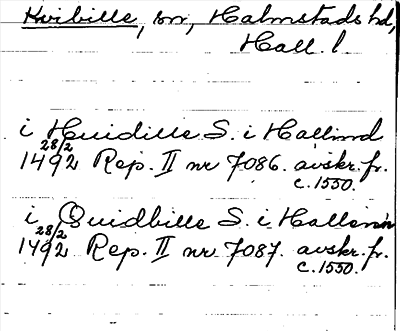 Kvibille, sn, Halmstads hd,
Hall. l
i Huidille S. i Hallind
28/2
1492 Rep. II nr 7086. avskr. fr.
c. 1550.
i Quidbille S. i
28/2
1492 Rep. II nr 7087. avskr. fr.
c. 1550.